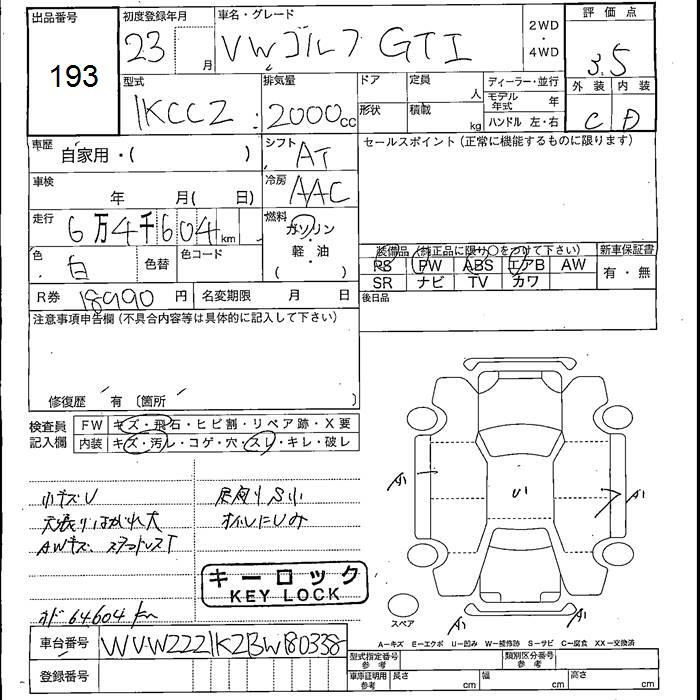 出品番号
193
初度登録年月
23 月
車名・グレード
VW ゴルフ GTI
2WD
・
4WD
評価点
3.5
外装 内装
C D
型式
1KCCZ
排気量
2000cc
ドア
形状
定員 人
積載 kg
ディーラー・並行
モデル年式 年
ハンドル 左・右
車歴 自家用・( )
シフト AT
セールスポイント (正常に機能するものに限ります)
車検 年 月( 日)
冷房 AAC
走行 6万4千604km
燃料 ガソリン
・
軽・油
( )
色 白 色替 色コード
装備品 (純正品に限り○をつけて下さい)
新車保証書
PS PW ABS エアB AW
有・無
SR ナビ TV カワ
R券 18990円 名変期限 月 日
後日品
注意事項申告欄 (不具合内容等は具体的に記入して下さい)
修復歴 有 〔箇所 〕
検査員記入欄
FW キズ・飛石・ヒビ割・リペア跡・X要
内装 キズ・汚レ・コゲ・穴・スレ・キレ・破レ
小キズU
天張りはがれ大
AWキズ
オド 64604 km
下廻りS小
オイルにじみ
キーロック
KEY LOCK
A1
U1
A1
A1
A1
スペア
A1
A1
A-キズ E-エクボ U-凹み W-補修跡 S-サビ C-腐食 XX-交換済
車台番号 WVWZZZ1KZBW180338
登録番号
型式指定番号 参考
類別区分番号 参考
車庫証明用 参考
長さ cm
幅 cm
高さ cm